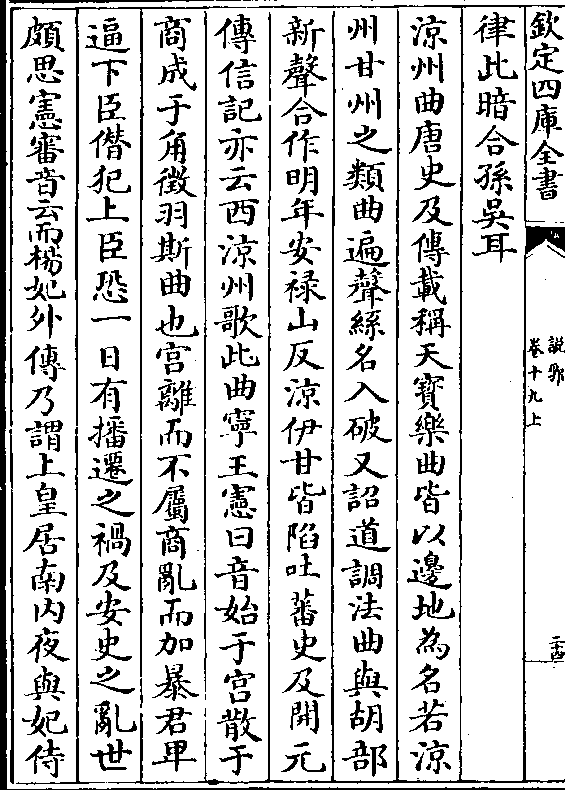 欽定四庫全書
說郛
卷十九上
二十四
律此暗合孫吳耳
涼州曲唐史及傳載稱天寶樂曲皆以邊地為名若涼
州甘州之類曲遍聲絲名入破又詔道調法曲與胡部
新聲合作明年安祿山反涼伊甘皆陷吐蕃史及開元
傳信記亦云西涼州歌此曲寧王憲曰音始于宮散于
商成于角徵羽斯曲也宮離而不屬商亂而加暴君卑
逼下臣僭犯上臣恐一日有播遷之禍及安史之亂世
頗思憲審音云而楊妃外傳乃謂上皇居南内夜與妃侍